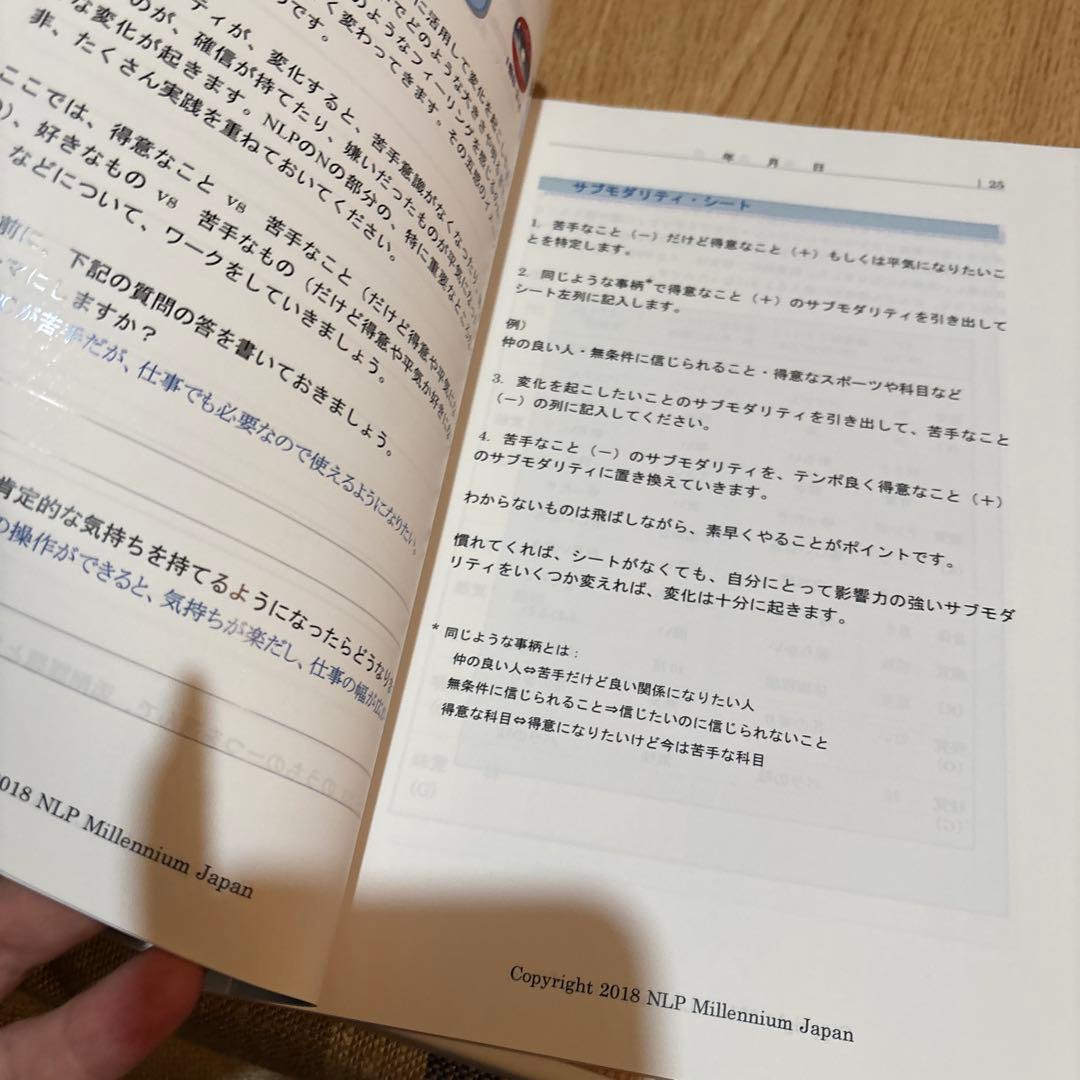 に活用して変化を
でどのような大きさや
のようなフィーリングを感じるの
く変わってきます。その五感の
です。
ティが、変化すると、苦手意識がなくなったり、
のが、確信が持てたり、嫌いだったものが平気になっ
な変化が起きます。NLPのNの部分の、特に重要なところ
非、たくさん実践を重ねておいてください。
ここでは、得意なこと vs 苦手なこと（だけど得意や平気に
）、好きなもの vs 苦手なもの（だけど得意や平気か好きにな
などについて、ワークをしていきましょう。
前に。下記の質問の答を書いておきましょう。
マにしますか？
が苦手だが、仕事でも必要なので使えるようになりたい。
肯定的な気持ちを持てるようになったらどうなり
の操作ができると、気持ちが楽だし、仕事の幅が広
018 NLP Millennium Japan
年 月 日
| 25
サブモダリティ・シート
1. 苦手なこと（－）だけど得意なこと（＋）もしくは平気になりたいこ
とを特定します。
2. 同じような事柄*で得意なこと（＋）のサブモダリティを引き出して
シート左列に記入します。
例）
仲の良い人・無条件に信じられること・得意なスポーツや科目など
3. 変化を起こしたいことのサブモダリティを引き出して、苦手なこと
（－）の列に記入してください。
4. 苦手なこと（－）のサブモダリティを、テンポ良く得意なこと（＋）
のサブモダリティに置き換えていきます。
わからないものは飛ばしながら、素早くやることがポイントです。
慣れてくれば、シートがなくても、自分にとって影響力の強いサブモダ
リティをいくつか変えれば、変化は十分に起きます。
* 同じような事柄とは：
仲の良い人⇔苦手だけど良い関係になりたい人
無条件に信じられること⇒信じたいのに信じられないこと
得意な科目⇔得意になりたいけど今は苦手な科目
Copyright 2018 NLP Millennium Japan